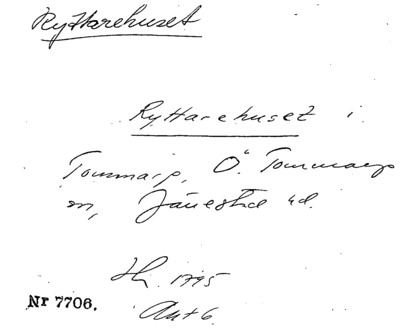 Ryttarehuset
Ryttarehuset i
Tommarp, Ö. Tommarps
sn, Järrestad hd.
Hh. 1795
Akt 6
Nr 7706.